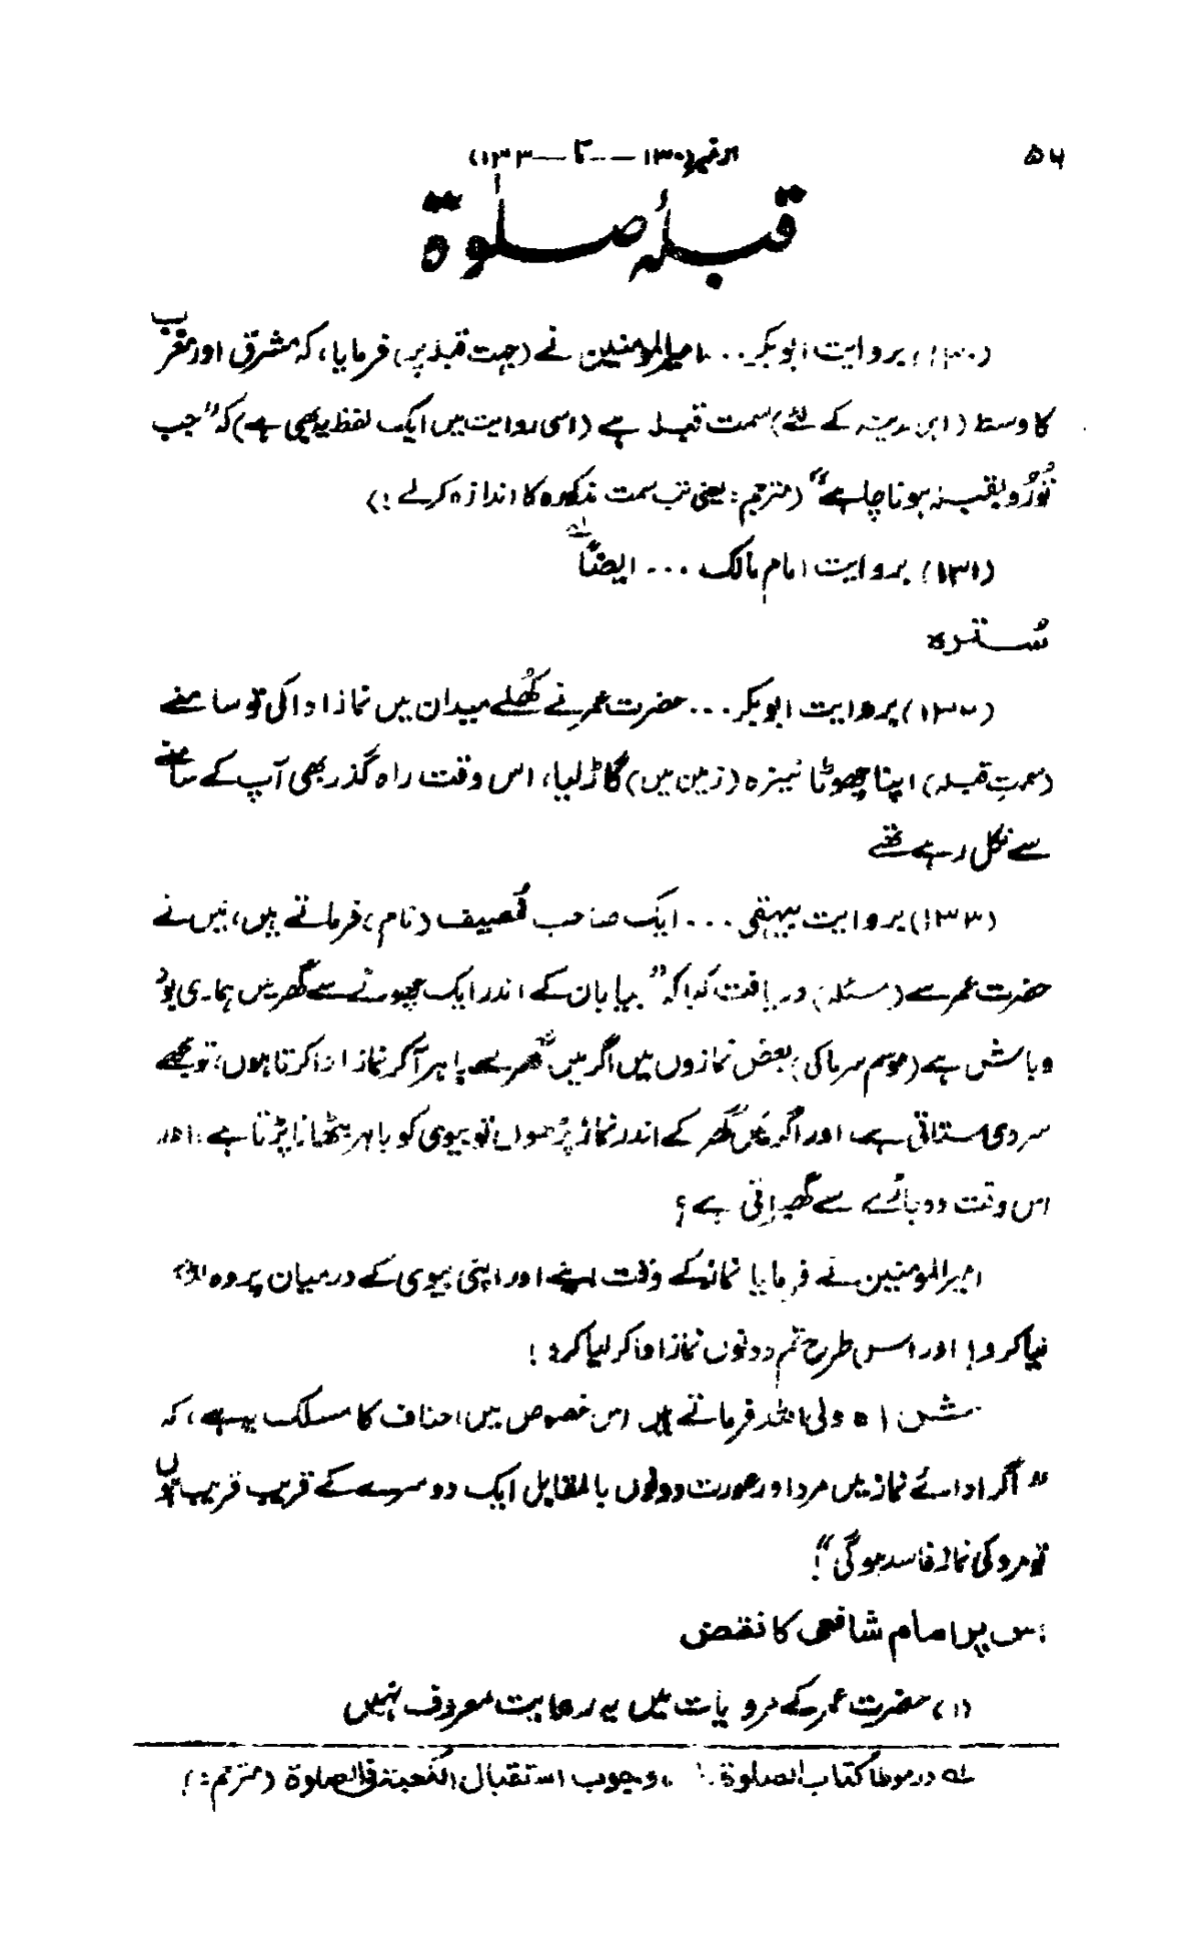 ۵۶
(از نمبر ۱۳۰ --- تا --- ۱۳۳)
قبلۂ صلوٰۃ
(۱۳۰) بروایت ابوبکر ... امیرالمومنین نے (جہت قبلہ پر) فرمایا، کہ مشرق اور مغرب
کا وسط (اہل مدینہ کے لئے) سمت قبلہ ہے (اسی روایت میں ایک لفظ یہ بھی ہے) کہ "جب
تو رُو بقبلہ ہونا چاہے" (مترجم: یعنی تب سمت مذکورہ کا اندازہ کرلے!)
(۱۳۱) بروایت امام مالک ... ایضاً لہ
سُترہ
(۱۳۲) بروایت ابوبکر ... حضرت عمر نے کُھلے میدان میں نماز ادا کی تو سامنے
(سمتِ قبلہ) اپنا چھوٹا نیزہ (زمین میں) گاڑ لیا، اس وقت راہ گذر بھی آپ کے سامنے
سے نکل رہے تھے
(۱۳۳) بروایت بیہقی ... ایک صاحب غُصیف (نام) فرماتے ہیں، میں نے
حضرت عمر سے (مسئلہ) دریافت کیا کہ "بیابان کے اندر ایک چھوٹے سے گھر میں ہماری بود
و باش ہے (موسم سرما کی) بعض نمازوں میں اگر میں گھر سے باہر آکر نماز ادا کرتا ہوں، تو مجھے
سردی ستاتی ہے اور اگر میں گھر کے اندر نماز پڑھوں تو بیوی کو باہر بٹھانا پڑتا ہے، اور
اس وقت وہ جاڑے سے گھبراتی ہے؟
امیرالمومنین نے فرمایا نماز کے وقت اپنے اور اپنی بیوی کے درمیان پردہ
لیا کرو! اور اس طرح تم دونوں نماز ادا کر لیا کرو!
شاہ ولی اللہ فرماتے ہیں اس خصوص میں احناف کا مسلک یہ ہے، کہ
"اگر ادائے نماز میں مرد اور عورت دونوں بالمقابل ایک دوسرے کے قریب قریب ہوں
تو مرد کی نماز فاسد ہوگی"!
اس پر امام شافعی کا نقض
(۱) حضرت عمر کے مرویات میں یہ روایت معروف نہیں
لہ در موطا کتاب الصلوٰۃ وجوب استقبال الکعبۃ فی الصلوٰۃ (مترجم:)